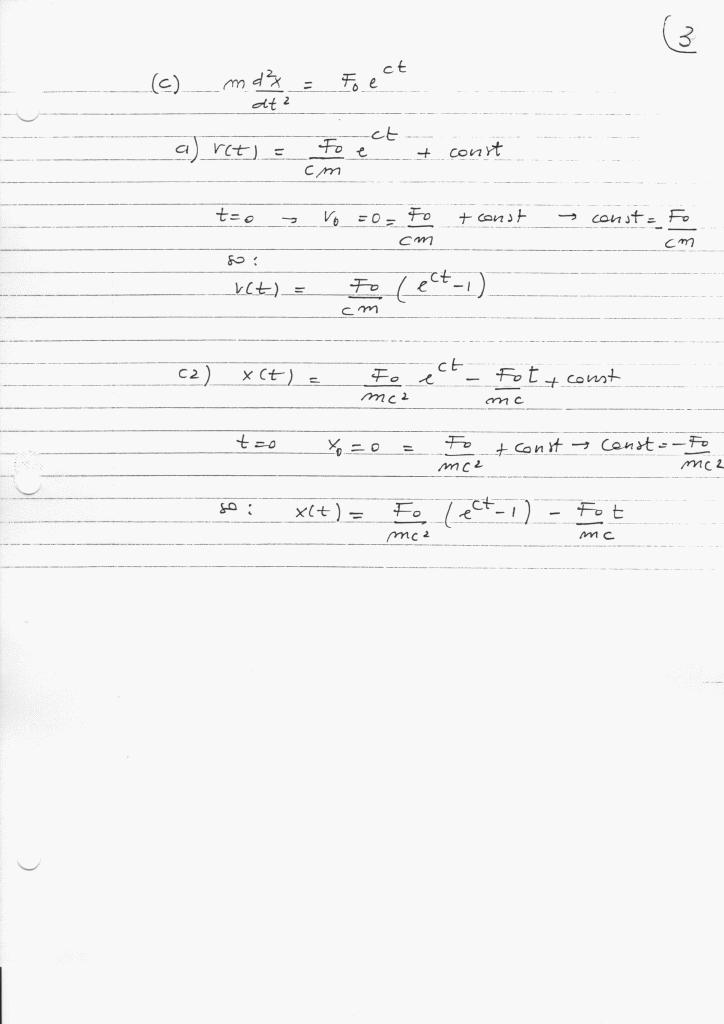 (3
(c) m d²x/dt² = F₀ e^ct
a) v(t) = F₀/cm e^ct + const
t=0 → v₀ = 0 = F₀/cm + const → const = F₀/cm
so :
v(t) = F₀/cm (e^ct - 1)
c2) x(t) = F₀/mc² e^ct - F₀t/mc + const
t=0 x₀ = 0 = F₀/mc² + const → const = -F₀/mc²
so : x(t) = F₀/mc² (e^ct - 1) - F₀t/mc